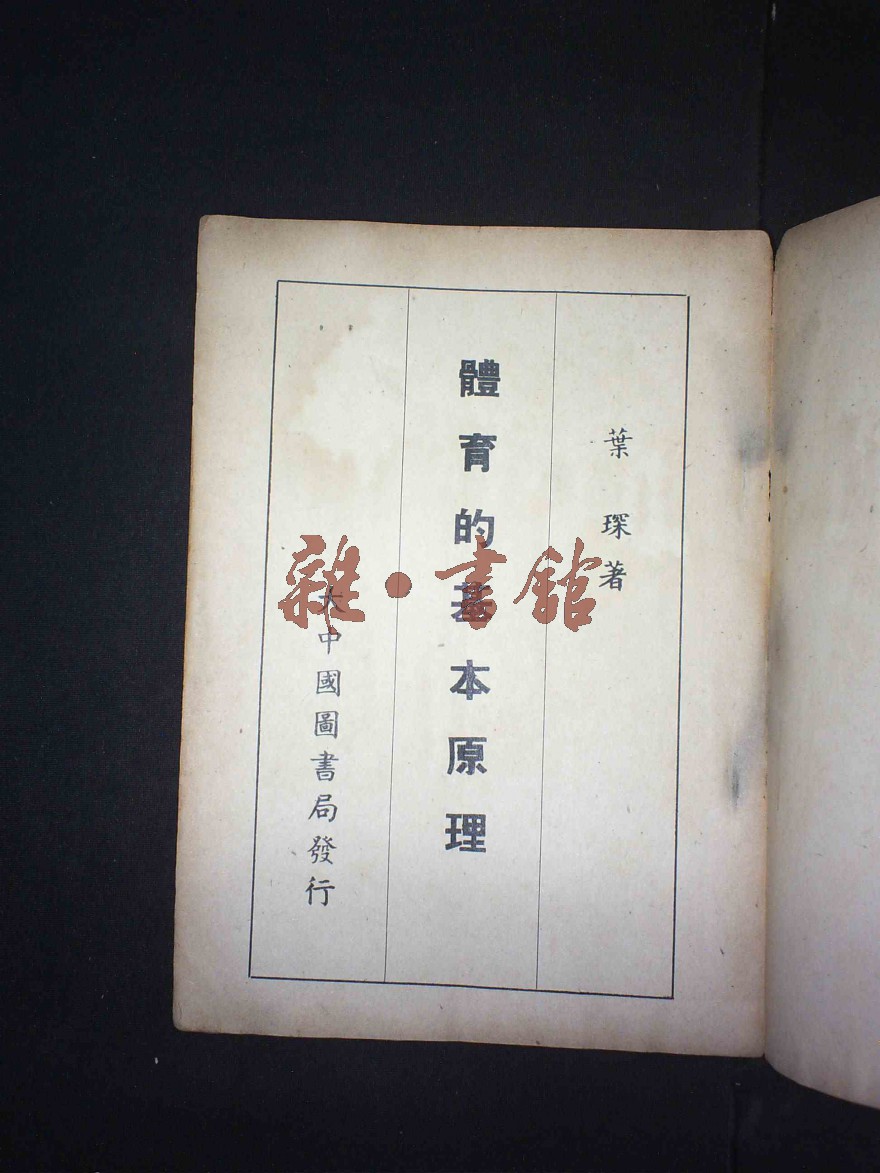 葉琛著
體育的基本原理
大中國圖書局發行
雜·書館